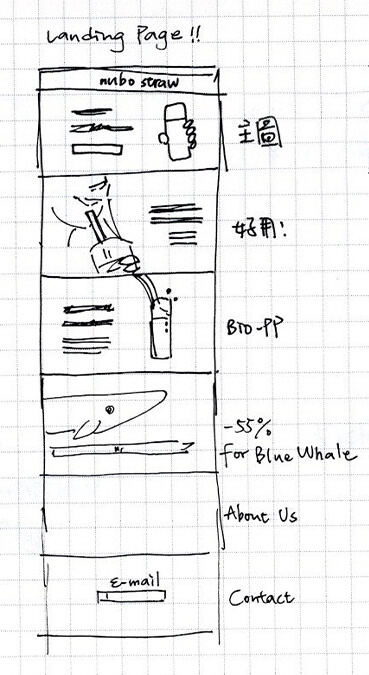 Landing Page !!
nubo straw
主圖
好用!
BIO-PP
-55%
for Blue Whale
About Us
E-mail
Contact